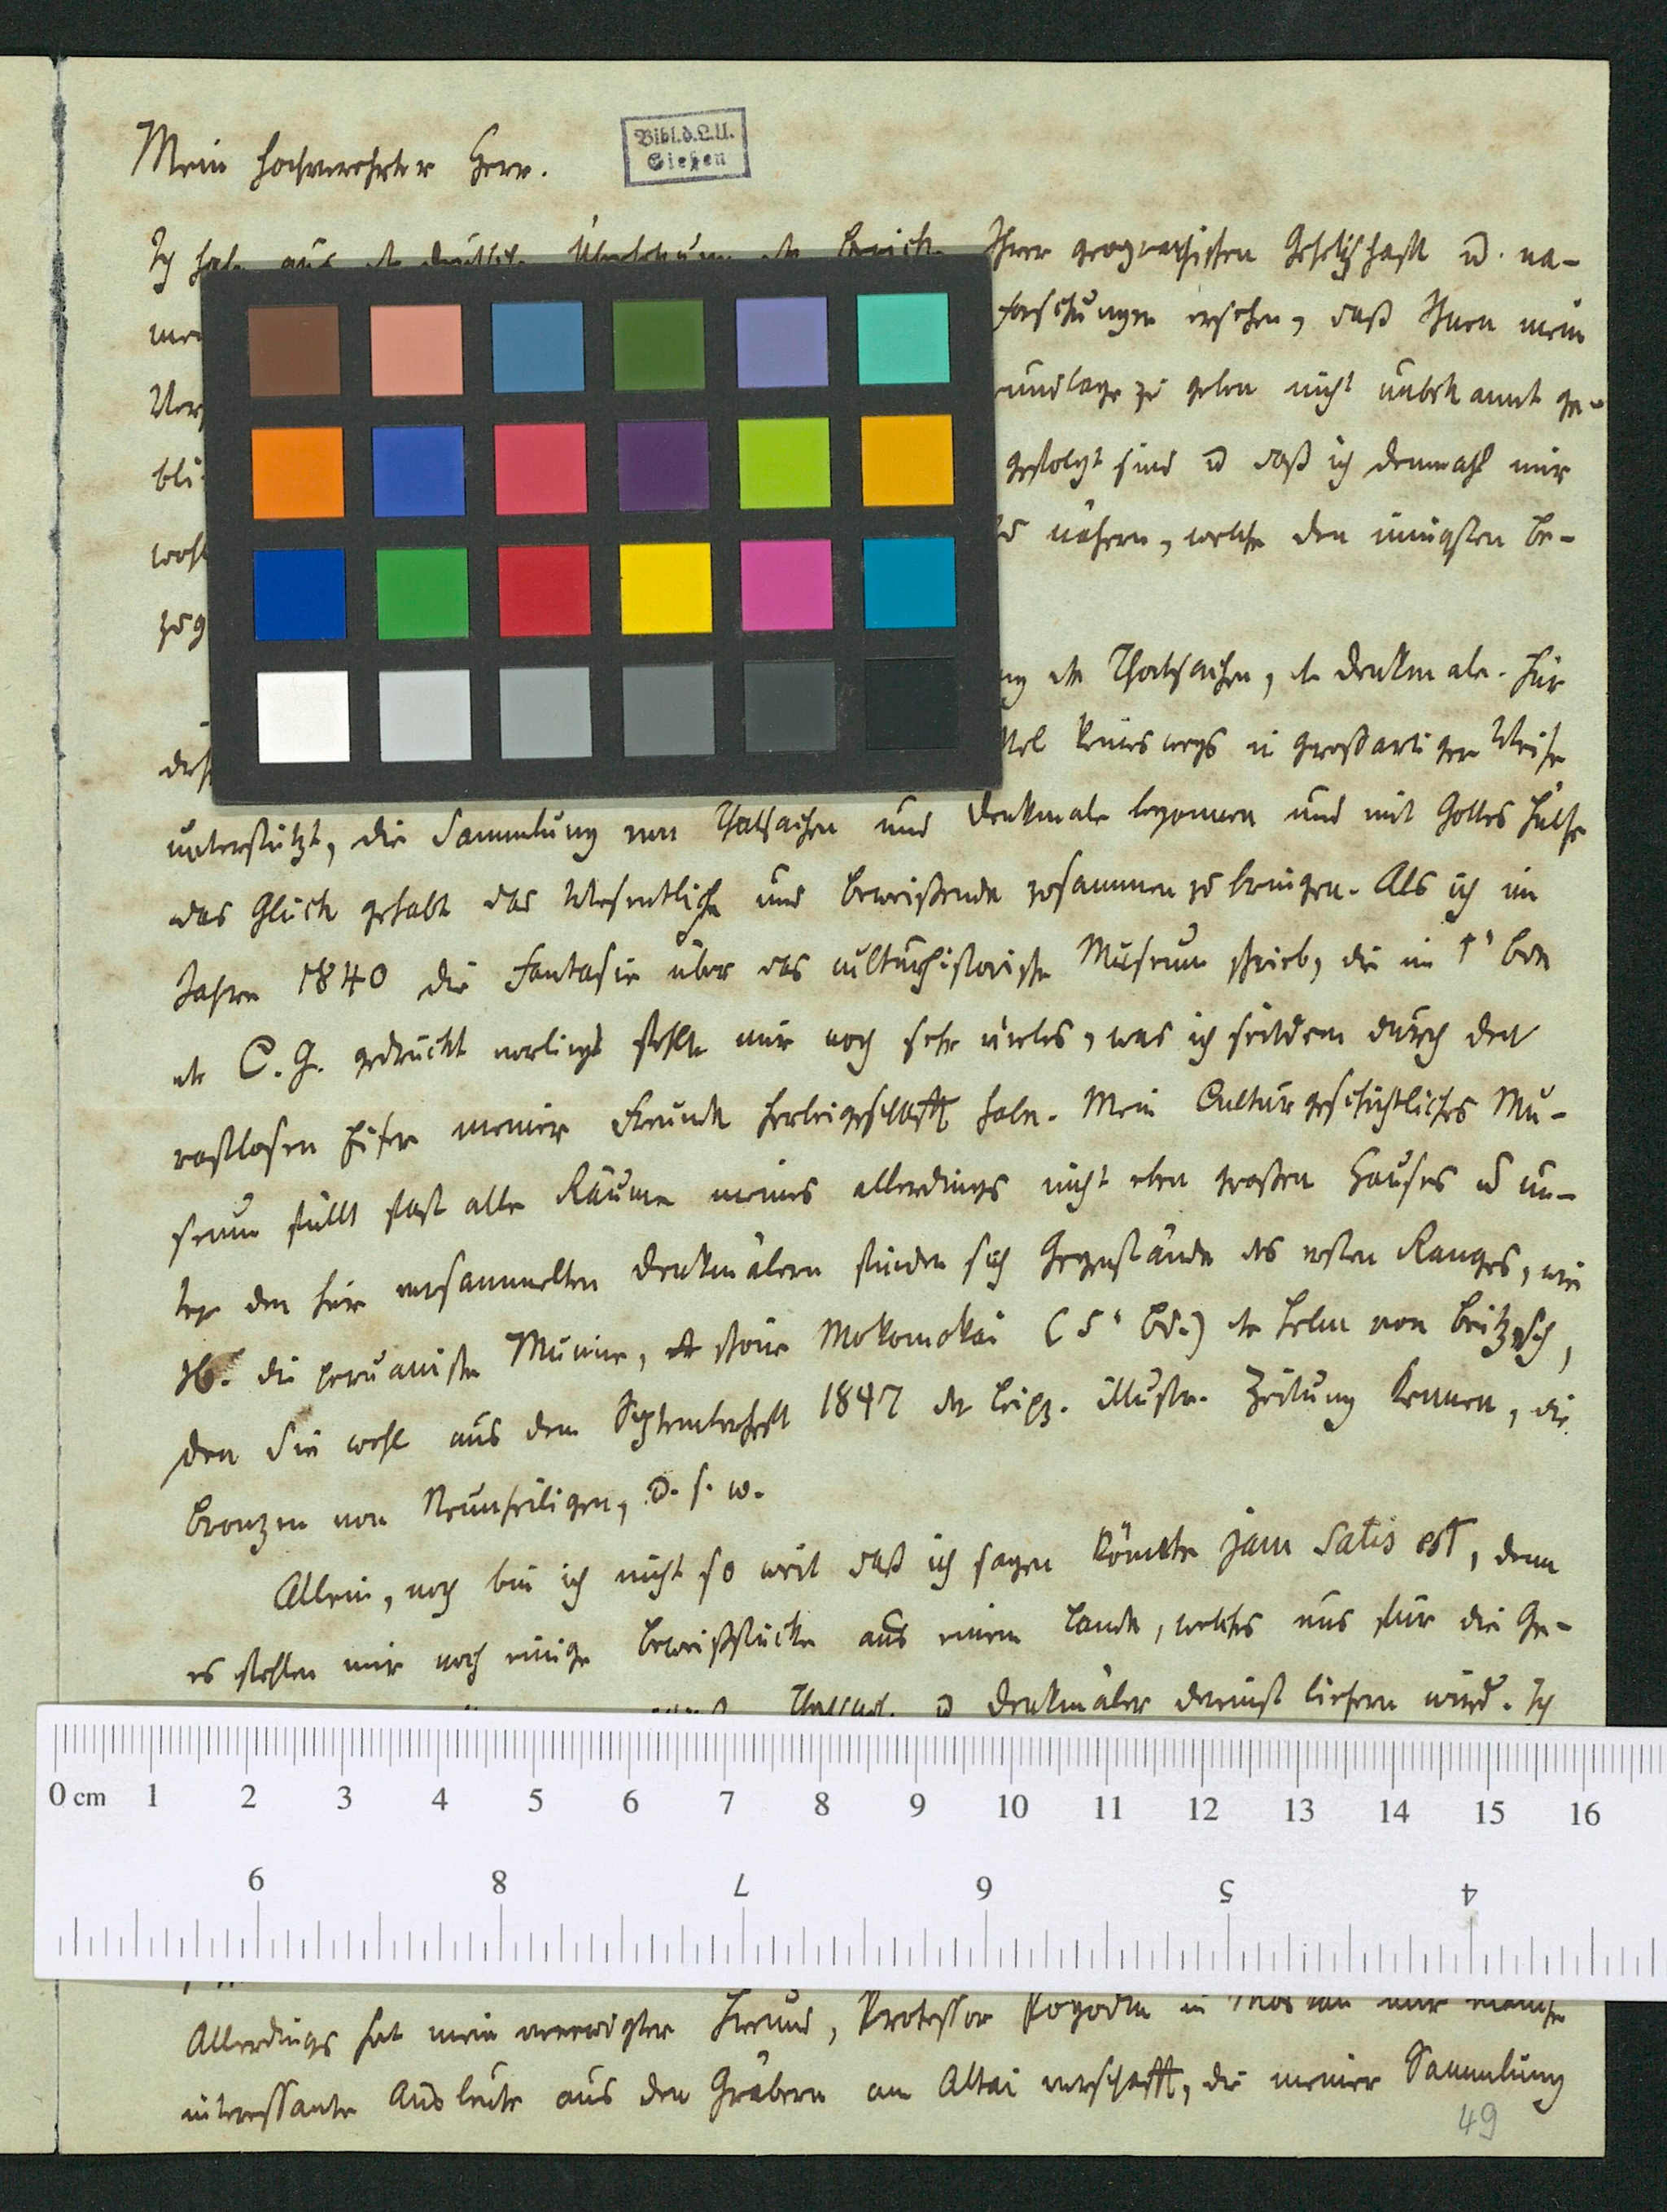 Mein hochverehrter Herr.
Bibl.d.L.U.
Gießen
Ich habe aus der deutschen der Ihrer geographischen Gesellschaft u. na-
Forschungen ersehen, daß Ihnen mein
zu geben nicht unbekannt ge-
gefolgt sind u daß ich demnach mir
nähern, welche den innigsten Be-
zug
der Thatsachen, der Denkmale. Hier
keineswegs in großartiger Weise
unterstützt, die Sammlung von Thatsachen und Denkmale begonnen und mit Gottes Hülfe
das Glück gehabt das Wesentliche und Beweisende zusammen zu bringen. Als ich im
Jahre 1840 die Fantasie über das culturhistorische Museum schrieb, die im 1' Bde
der C. G. gedruckt vorliegt fehlte mir noch sehr vieles, was ich seitdem durch den
rastlosen Eifer meiner Freunde herbeigeschafft habe. Mein Culturgeschichtliches Mu-
seum füllt fast alle Räume meines allerdings nicht eben großen Hauses u un-
ter den hier versammelten Denkmälern finden sich Gegenstände des ersten Ranges, wie
zB. die peruanische Mumie, der schöne Mokomokai (5' Bd.) der Helm von Beitzsch,
den Sie wohl aus dem Septemberheft 1847 der Leipz. illustr. Zeitung kennen, die
Bronzen von Neunheiligen, u. s. w.
Allein, noch bin ich nicht so weit daß ich sagen könnte jam satis est, denn
es fehlen mir noch einige Beweisstücke aus einem Lande, welches uns für die Ge-
u Denkmäler dereinst liefern wird. Ich
0 cm 1 2 3 4 5 6 7 8 9 10 11 12 13 14 15 16
9 8 7 6 5 4
Allerdings hat mein verewigter Freund, Professor Pogodin in Moskau mir manche
interessante Ausbeute aus den Gräbern am Altai verschafft, die meiner Sammlung
49